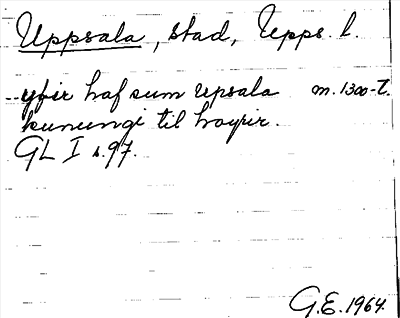 Uppsala, stad, Upps. l.
yfir haf sum upsala m. 1300-t.
kunungi til hoyrir.
GL I s. 97.
G.E. 1964.